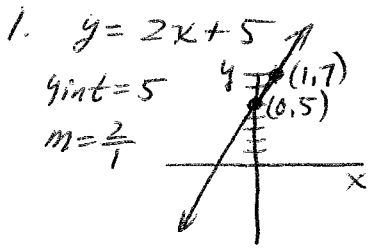 1. y = 2x + 5
y int = 5
m = 2/1
y
(1,7)
(0,5)
x